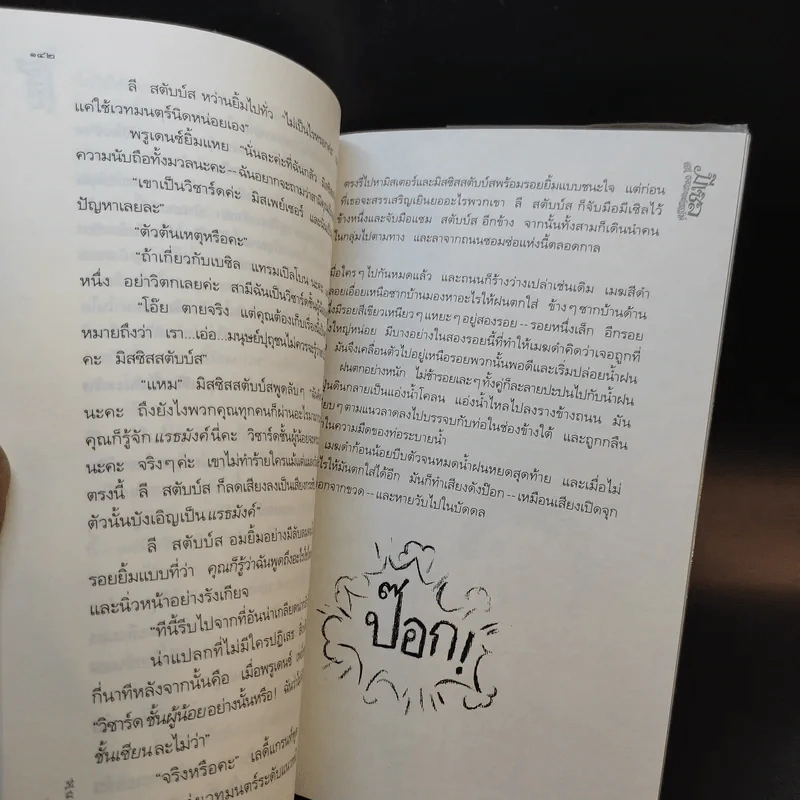 ๑๔๒
ลี สตับบ์ส หว่านยิ้มไปทั่ว "ไม่เป็นไรหรอกค่ะ
แค่ใช้เวทมนตร์นิดหน่อยเอง"
พรูเดนซ์ยิ้มแหย "นั่นละค่ะที่ฉันกลัว
ความนับถือทั้งมวลนะคะ -- ฉันอยากจะถามว่า
"เขาเป็นวิซาร์ดค่ะ มิสเพย์เซอร์ และ
ปัญหาเลยละ"
"ตัวต้นเหตุหรือคะ"
"ถ้าเกี่ยวกับเบซิล แทรมเปิลโบน นะคะ
หนึ่ง อย่าวิตกเลยค่ะ สามีฉันเป็นวิซาร์ดชั้นผู้
"โอ๊ย ตายจริง แต่คุณต้องเก็บเรื่องนี้
หมายถึงว่า เรา...เอ่อ...มนุษย์ปุถุชนไม่ควรจะรู้
คะ มิสซิสสตับบ์ส"
"แหม" มิสซิสสตับบ์สพูดลับๆ
นะคะ ถึงยังไงพวกคุณทุกคนก็ผ่านอะไร
คุณก็รู้จัก แรธมังค์นี่คะ วิซาร์ดชั้นผู้น้อย
นะคะ จริงๆ ค่ะ เขาไม่ทำร้ายใครแม้แต่
ตรงนี้ ลี สตับบ์ส ก็ลดเสียงลงเป็นเสียง
ตัวนั้นบังเอิญเป็น แรธมังค์"
ลี สตับบ์ส อมยิ้มอย่างมีลับลม
รอยยิ้มแบบที่ว่า คุณก็รู้ว่าฉันพูดถึงอะไร
และนิ่วหน้าอย่างรังเกียจ
"ทีนี้รีบไปจากที่อันน่าเกลียด
น่าแปลกที่ไม่มีใครปฏิเสธ
กี่นาทีหลังจากนั้นคือ เมื่อพรูเดนซ์
"วิซาร์ด ชั้นผู้น้อย อย่างนั้นหรือ!
ชั้นเซียน ละไม่ว่า"
"จริงหรือคะ" เลดี้แกรนท์
เวทมนตร์ระดับ
ปีเตอร์
ตรงรี่ไปหามิสเตอร์และมิสซิสสตับบ์สพร้อมรอยยิ้มแบบชนะใจ แต่ก่อน
ที่เธอจะสรรเสริญเยินยออะไรพวกเขา ลี สตับบ์ส ก็จับมือมีเซิลไว้
ข้างหนึ่งและจับมือแซม สตับบ์ส อีกข้าง จากนั้นทั้งสามก็เดินนำคน
ในกลุ่มไปตามทาง และลาจากถนนซอมซ่อแห่งนี้ตลอดกาล
มื่อใครๆ ไปกันหมดแล้ว และถนนก็ร้างว่างเปล่าเช่นเดิม เมฆสีดำ
ลอยเอื่อยเหนือซากบ้านมองหาอะไรให้ฝนตกใส่ ข้างๆ ซากบ้านด้าน
มีรอยสีเขียวเหนียวๆ แหยะๆ อยู่สองรอย -- รอยหนึ่งเล็ก อีกรอย
ใหญ่หน่อย มีบางอย่างในสองรอยนี้ที่ทำให้เมฆดำคิดว่าเจอถูกที่
มันจึงเคลื่อนตัวไปอยู่เหนือรอยพวกนั้นพอดีและเริ่มปล่อยน้ำฝน
ฝนตกอย่างหนัก ไม่ช้ารอยเละๆ ทั้งคู่ก็ละลายปะปนไปกับน้ำฝน
ดินกลายเป็นแอ่งน้ำโคลน แอ่งน้ำไหลไปลงรางข้างถนน มัน
ๆ ตามแนวลาดลงไปบรรจบกับท่อในช่องข้างใต้ และถูกกลืน
ในความมืดของท่อระบายน้ำ
เมฆดำก้อนน้อยบีบตัวจนหมดน้ำฝนหยดสุดท้าย และเมื่อไม่
ไรให้มันตกใส่ได้อีก มันก็ทำเสียงดังป๊อก -- เหมือนเสียงเปิดจุก
ออกจากขวด -- และหายวับไปในบัดดล
ป๊อก!